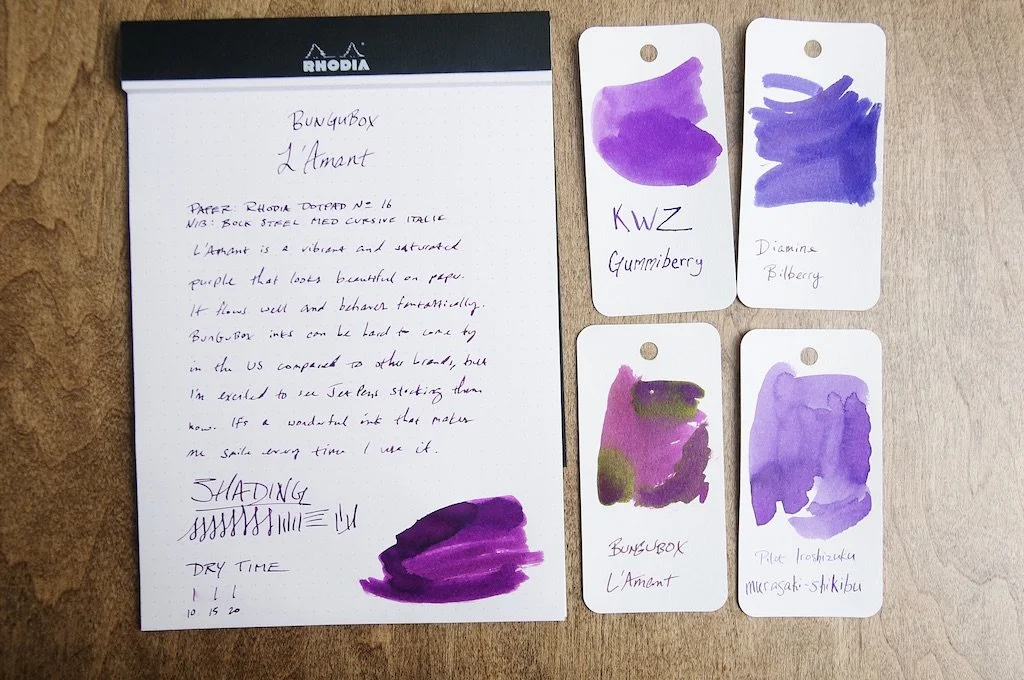 RHODIA
BUNGUBOX
L'Amant
PAPER: RHODIA DOTPAD No 16
NIB: BOCK STEEL MED CURSIVE ITALIC
L'Amant is a vibrant and saturated
purple that looks beautiful on paper.
It flows well and behaves fantastically.
BUNGUBOX inks can be hard to come by
in the US compared to other brands, but
I'm excited to see JetPens stocking them
now. It's a wonderful ink that makes
me smile every time I use it.
SHADING
DRY TIME
10 15 20
KWZ
Gummiberry
Diamine
Bilberry
BUNGUBOX
L'Amant
Pilot Iroshizuku
murasaki-shikibu